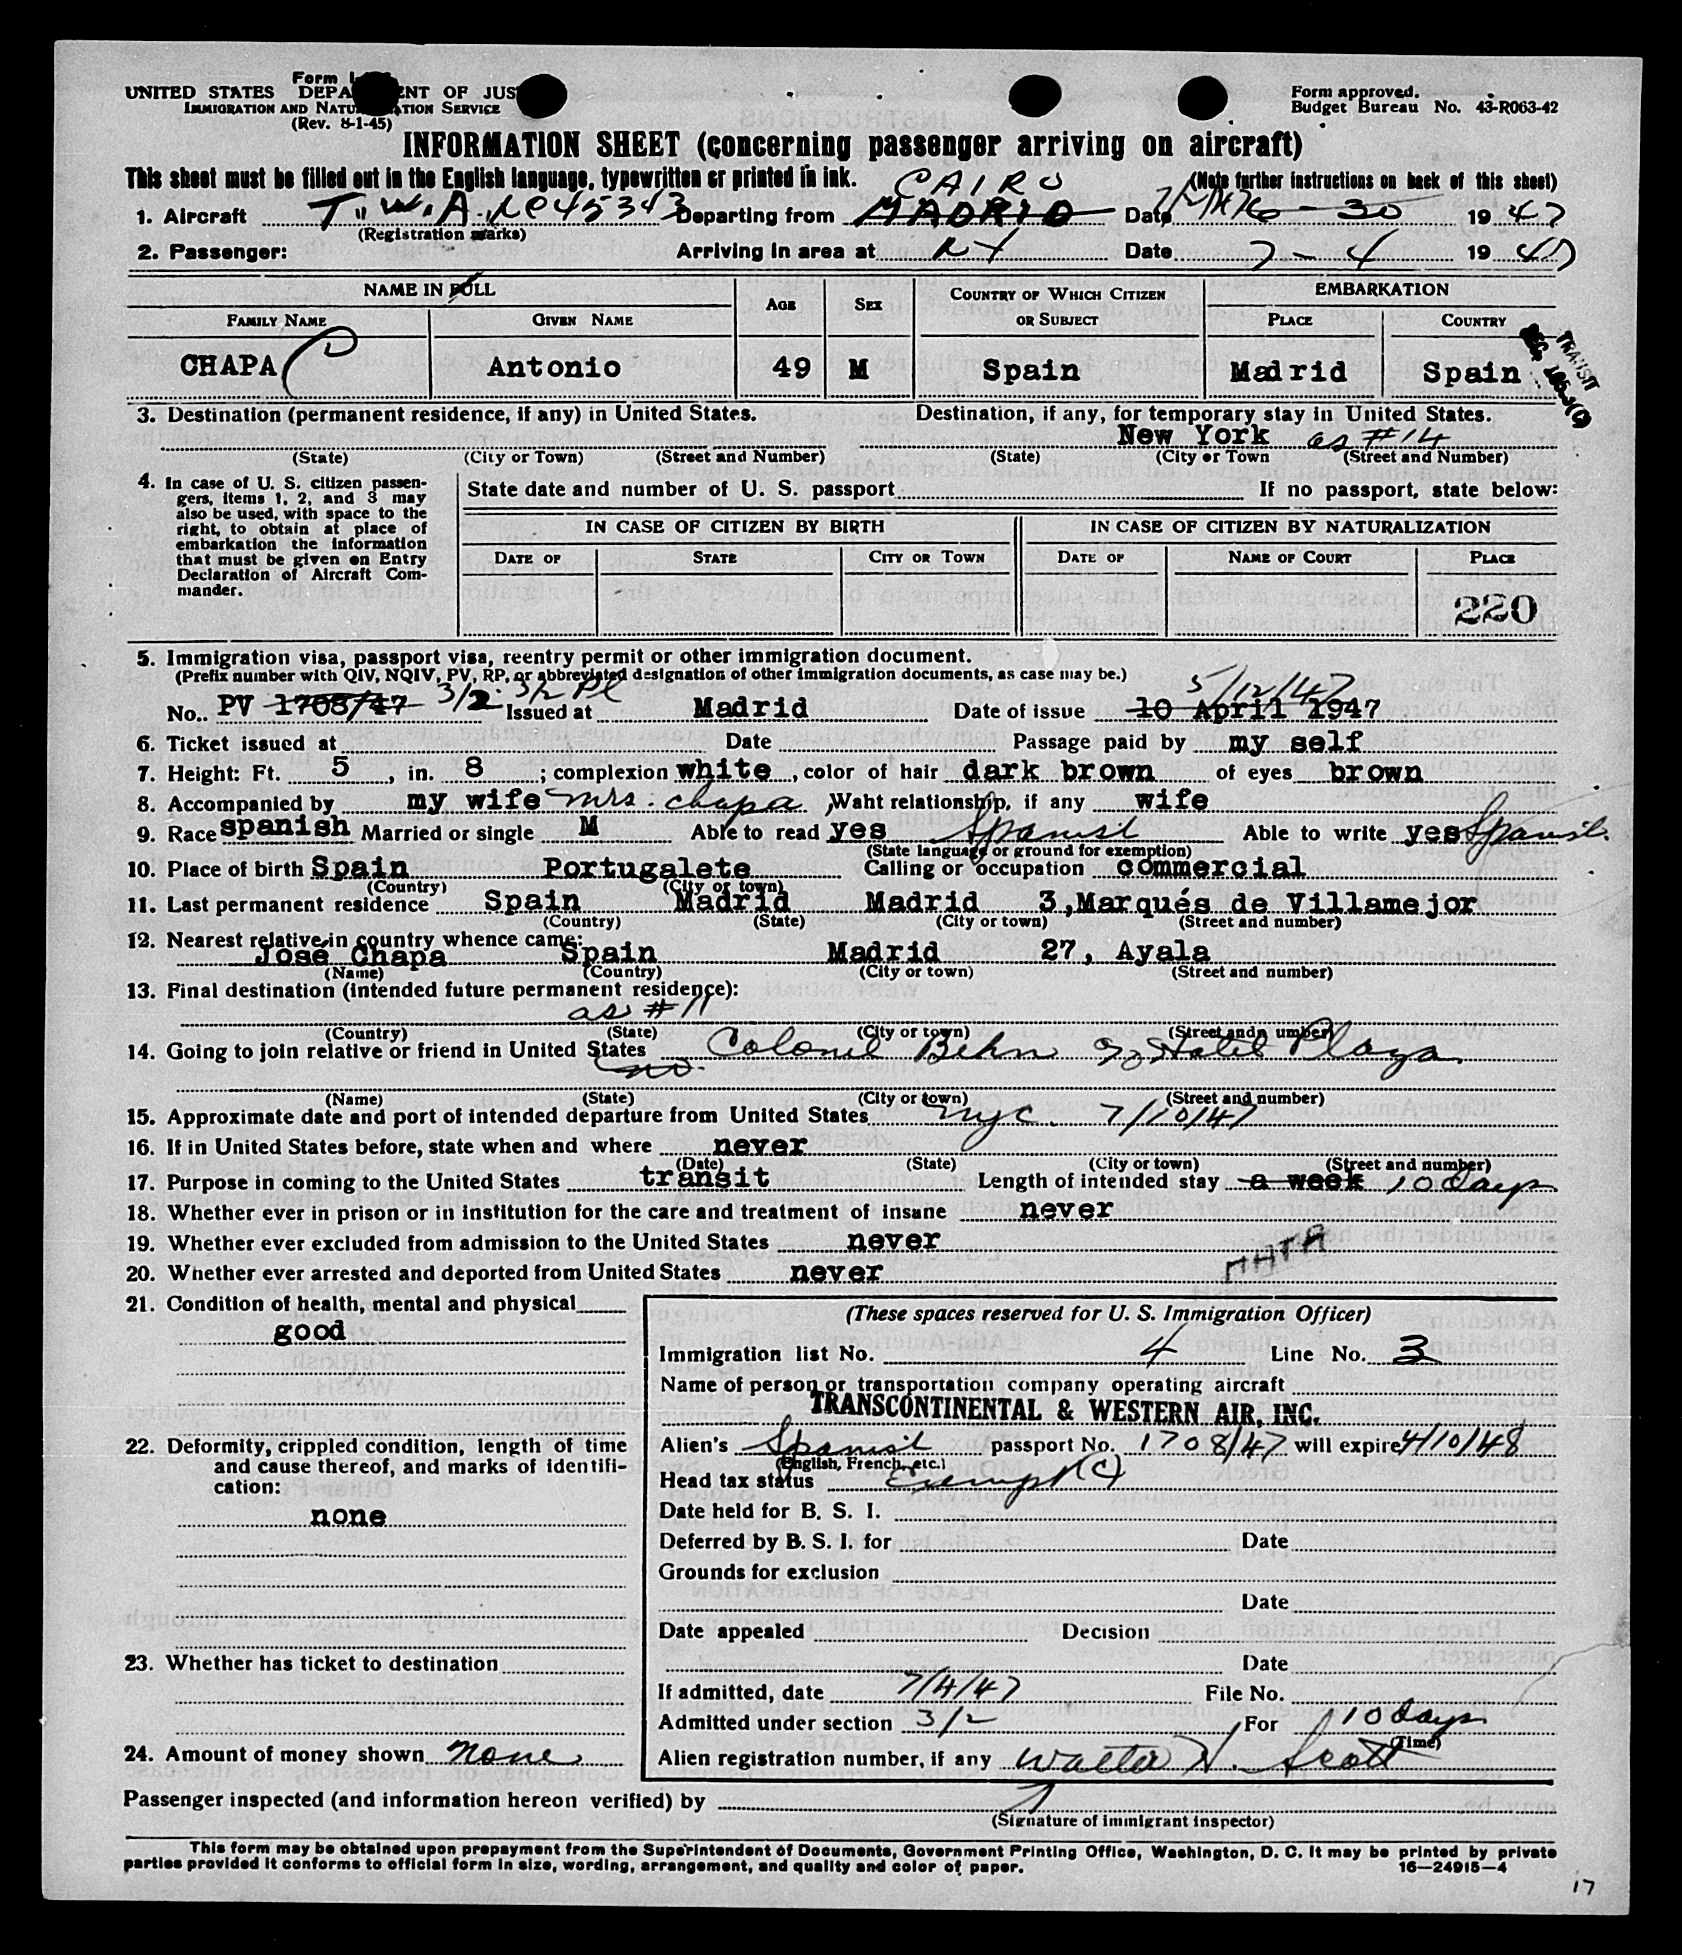 Form I
UNITED STATES DEPA NT OF JUS
IMMIGRATION AND NATU TION SERVICE
(Rev. 8-1-45)
Form approved.
Budget Bureau No. 43-R063-42
INFORMATION SHEET (concerning passenger arriving on aircraft)
This sheet must be filled out in the English language, typewritten or printed in ink.
(Note further instructions on back of this sheet)
CAIRO
1. Aircraft T.W.A. Departing from MADRID Date 30 1947
(Registration marks)
2. Passenger: Arriving in area at NY Date 7-4 1947
NAME IN FULL
AGE
SEX
COUNTRY OF WHICH CITIZEN
OR SUBJECT
EMBARKATION
FAMILY NAME GIVEN NAME PLACE COUNTRY
CHAPA Antonio 49 M Spain Madrid Spain
TRANSIT
3. Destination (permanent residence, if any) in United States. Destination, if any, for temporary stay in United States.
New York as #14
(State) (City or Town) (Street and Number) (State) (City or Town (Street and Number)
4. In case of U. S. citizen passen-
gers, items 1, 2, and 3 may
also be used, with space to the
right, to obtain at place of
embarkation the information
that must be given on Entry
Declaration of Aircraft Com-
mander.
State date and number of U. S. passport If no passport, state below:
IN CASE OF CITIZEN BY BIRTH IN CASE OF CITIZEN BY NATURALIZATION
DATE OF STATE CITY OR TOWN DATE OF NAME OF COURT PLACE
220
5. Immigration visa, passport visa, reentry permit or other immigration document.
(Prefix number with QIV, NQIV, PV, RP, or abbreviated designation of other immigration documents, as case may be.)
3/2 PL 5/12/47
No.. PV 1708/47 3/2 Issued at Madrid Date of issue 10 April 1947
6. Ticket issued at Date Passage paid by my self
7. Height: Ft. 5 , in. 8 ; complexion white , color of hair dark brown of eyes brown
8. Accompanied by my wife Mrs. Chapa , Waht relationship, if any wife
9. Race spanish Married or single M Able to read yes Spanish Able to write yes Spanish.
(State language or ground for exemption)
10. Place of birth Spain Portugalete Calling or occupation commercial
(Country) (City or town)
11. Last permanent residence Spain Madrid Madrid 3,Marqués de Villamejor
(Country) (State) (City or town) (Street and number)
12. Nearest relative in country whence came:
Jose Chapa Spain Madrid 27, Ayala
(Name) (Country) (City or town) (Street and number)
13. Final destination (intended future permanent residence):
as #11
(Country) (State) (City or town) (Street andn umber)
14. Going to join relative or friend in United States Colonel Behn % Hotel Plaza
no.
(Name) (State) (City or town) (Street and number)
15. Approximate date and port of intended departure from United States NYC. 7/10/47
16. If in United States before, state when and where never
(Date) (State) (City or town) (Street and number)
17. Purpose in coming to the United States transit Length of intended stay a week 10 days
18. Whether ever in prison or in institution for the care and treatment of insane never
19. Whether ever excluded from admission to the United States never
20. Whether ever arrested and deported from United States never
21. Condition of health, mental and physical
good
22. Deformity, crippled condition, length of time
and cause thereof, and marks of identifi-
cation:
none
23. Whether has ticket to destination
24. Amount of money shown none
(These spaces reserved for U. S. Immigration Officer)
Immigration list No. 4 Line No. 3
Name of person or transportation company operating aircraft
TRANSCONTINENTAL & WESTERN AIR, INC.
Alien's Spanish passport No. 1708/47 will expire 4/10/48
(English, French, etc.)
Head tax status Exempt (C)
Date held for B. S. I.
Deferred by B. S. I. for Date
Grounds for exclusion
Date
Date appealed Decision
Date
If admitted, date 7/4/47 File No.
Admitted under section 3/2 , For 10 days
(Time)
Alien registration number, if any Walter H. Scott
Passenger inspected (and information hereon verified) by
(Signature of immigrant inspector)
This form may be obtained upon prepayment from the Superintendent of Documents, Government Printing Office, Washington, D. C. It may be printed by private
parties provided it conforms to official form in size, wording, arrangement, and quality and color of paper. 16—24915—4
17